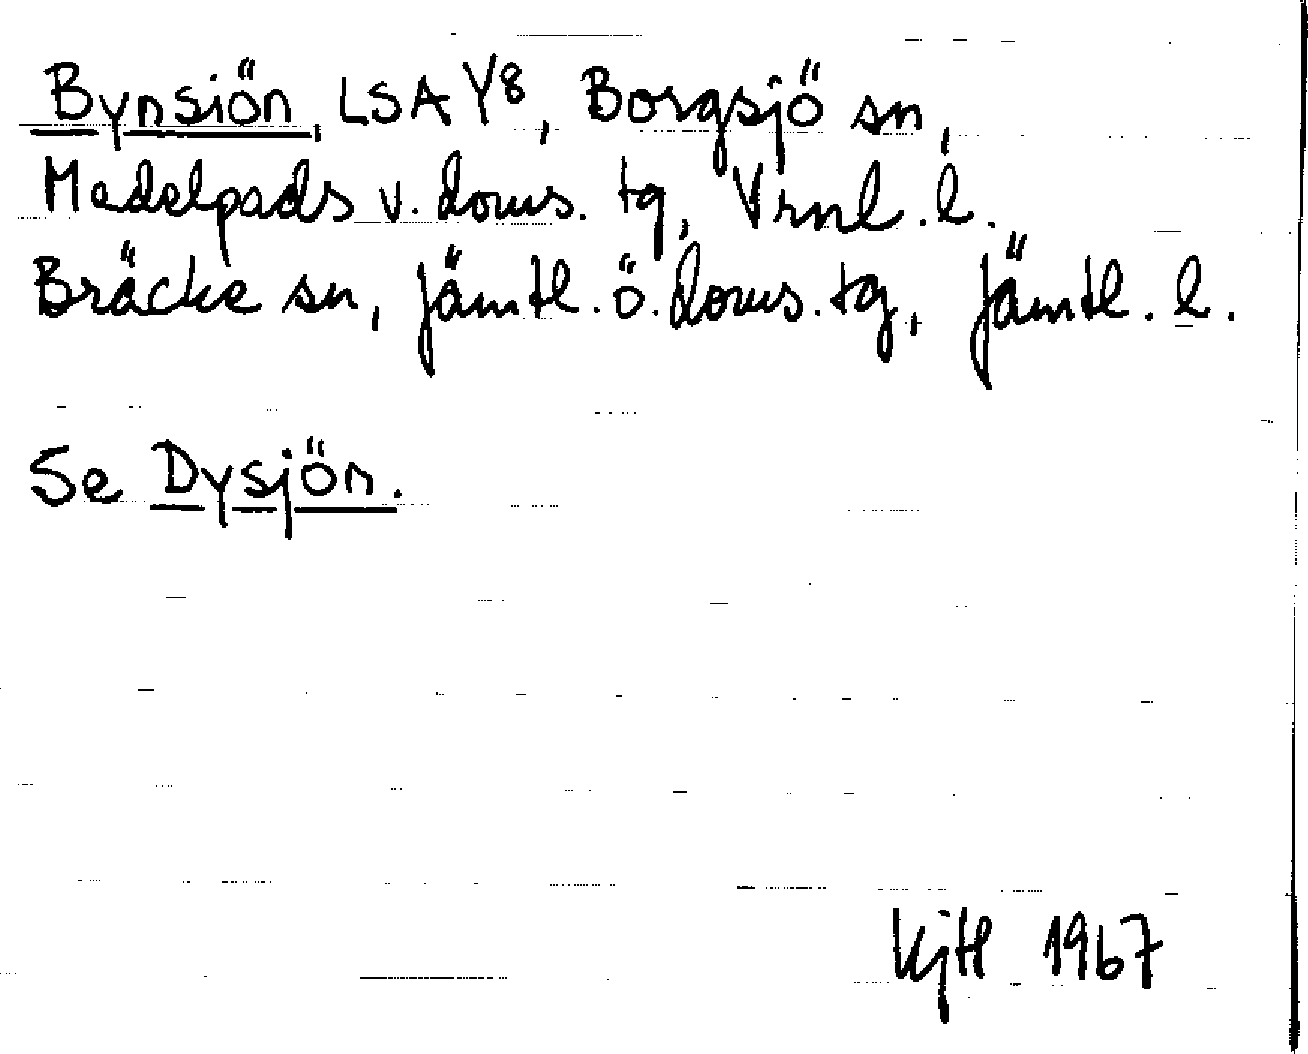 Bynsiön, LSA Y8, Borgsjö sn,
Medelpads v. doms. tg, Vrnl. l.
Bräcke sn, Jämtl. ö. doms. tg, Jämtl. l.
Se Dysjön.
KjH 1967